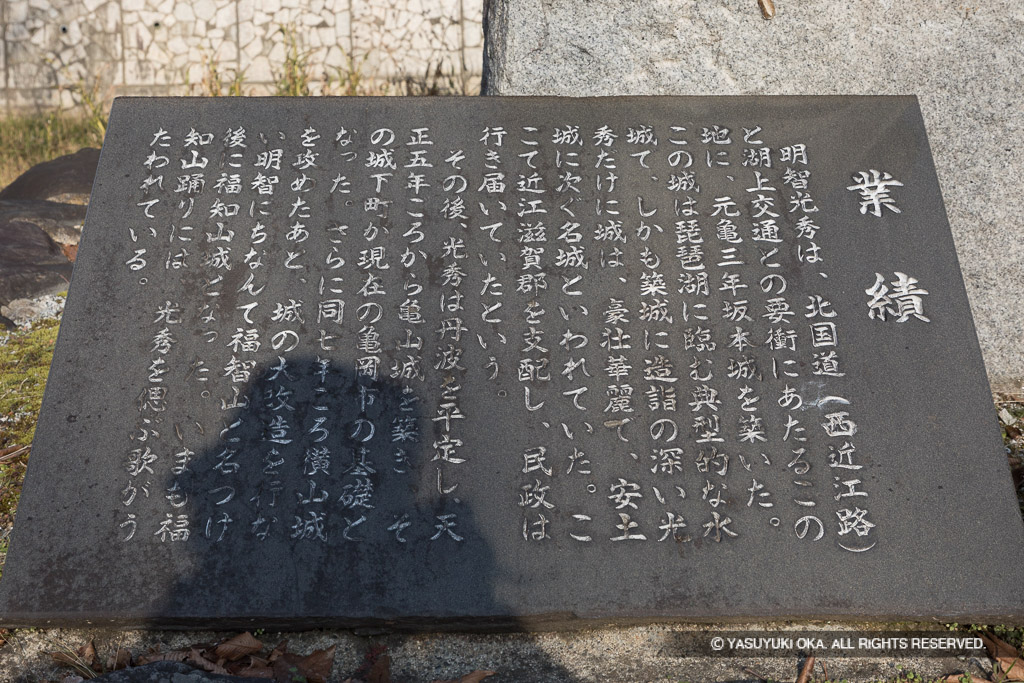 業績
明智光秀は、北国道(西近江路)
と湖上交通との要衝にあたるこの
地に、元亀三年坂本城を築いた。
この城は琵琶湖に臨む典型的な水
城で、しかも築城に造詣の深い光
秀だけに城は、豪壮華麗で、安土
城に次ぐ名城といわれていた。こ
こで近江滋賀郡を支配し、民政は
行き届いていたという。
その後、光秀は丹波を平定し、天
正五年ころから亀山城を築き そ
の城下町が現在の亀岡市の基礎と
なった。さらに同七年ころ横山城
を攻めたあと、城の大改造を行な
い明智にちなんで福智山と名つけ
後に福知山城となった。いまも福
知山踊りには 光秀を偲ぶ歌がう
たわれている。
© YASUYUKI OKA. ALL RIGHTS RESERVED.